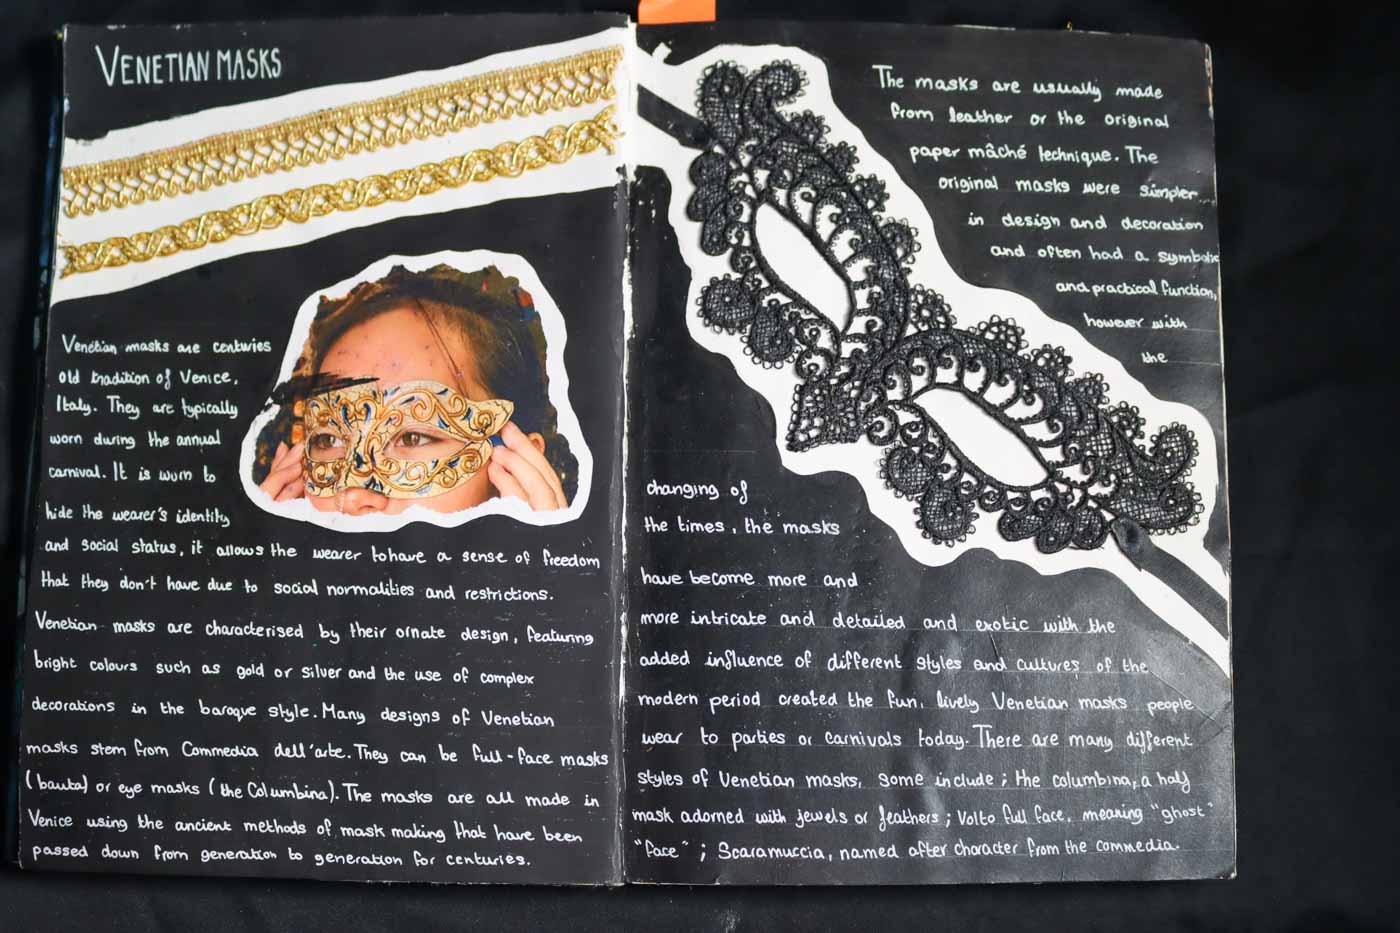 VENETIAN MASKS
Venetian masks are centuries
old tradition of Venice,
Italy. They are typically
worn during the annual
carnival. It is worn to
hide the wearer's identity
and social status, it allows the wearer to have a sense of freedom
that they don't have due to social normalities and restrictions.
Venetian masks are characterised by their ornate design, featuring
bright colours such as gold or silver and the use of complex
decorations in the baroque style. Many designs of Venetian
masks stem from Commedia dell'arte. They can be full-face masks
(bauta) or eye masks (the Columbina). The masks are all made in
Venice using the ancient methods of mask making that have been
passed down from generation to generation for centuries.
The masks are usually made
from leather or the original
paper mâché technique. The
original masks were simpler
in design and decoration
and often had a symbolic
and practical function,
however with
the
changing of
the times, the masks
have become more and
more intricate and detailed and exotic with the
added influence of different styles and cultures of the
modern period created the fun, lively Venetian masks people
wear to parties or carnivals today. There are many different
styles of Venetian masks, some include; the columbina, a half
mask adorned with jewels or feathers; Volto full face, meaning "ghost"
"face"; Scaramuccia, named after character from the commedia.